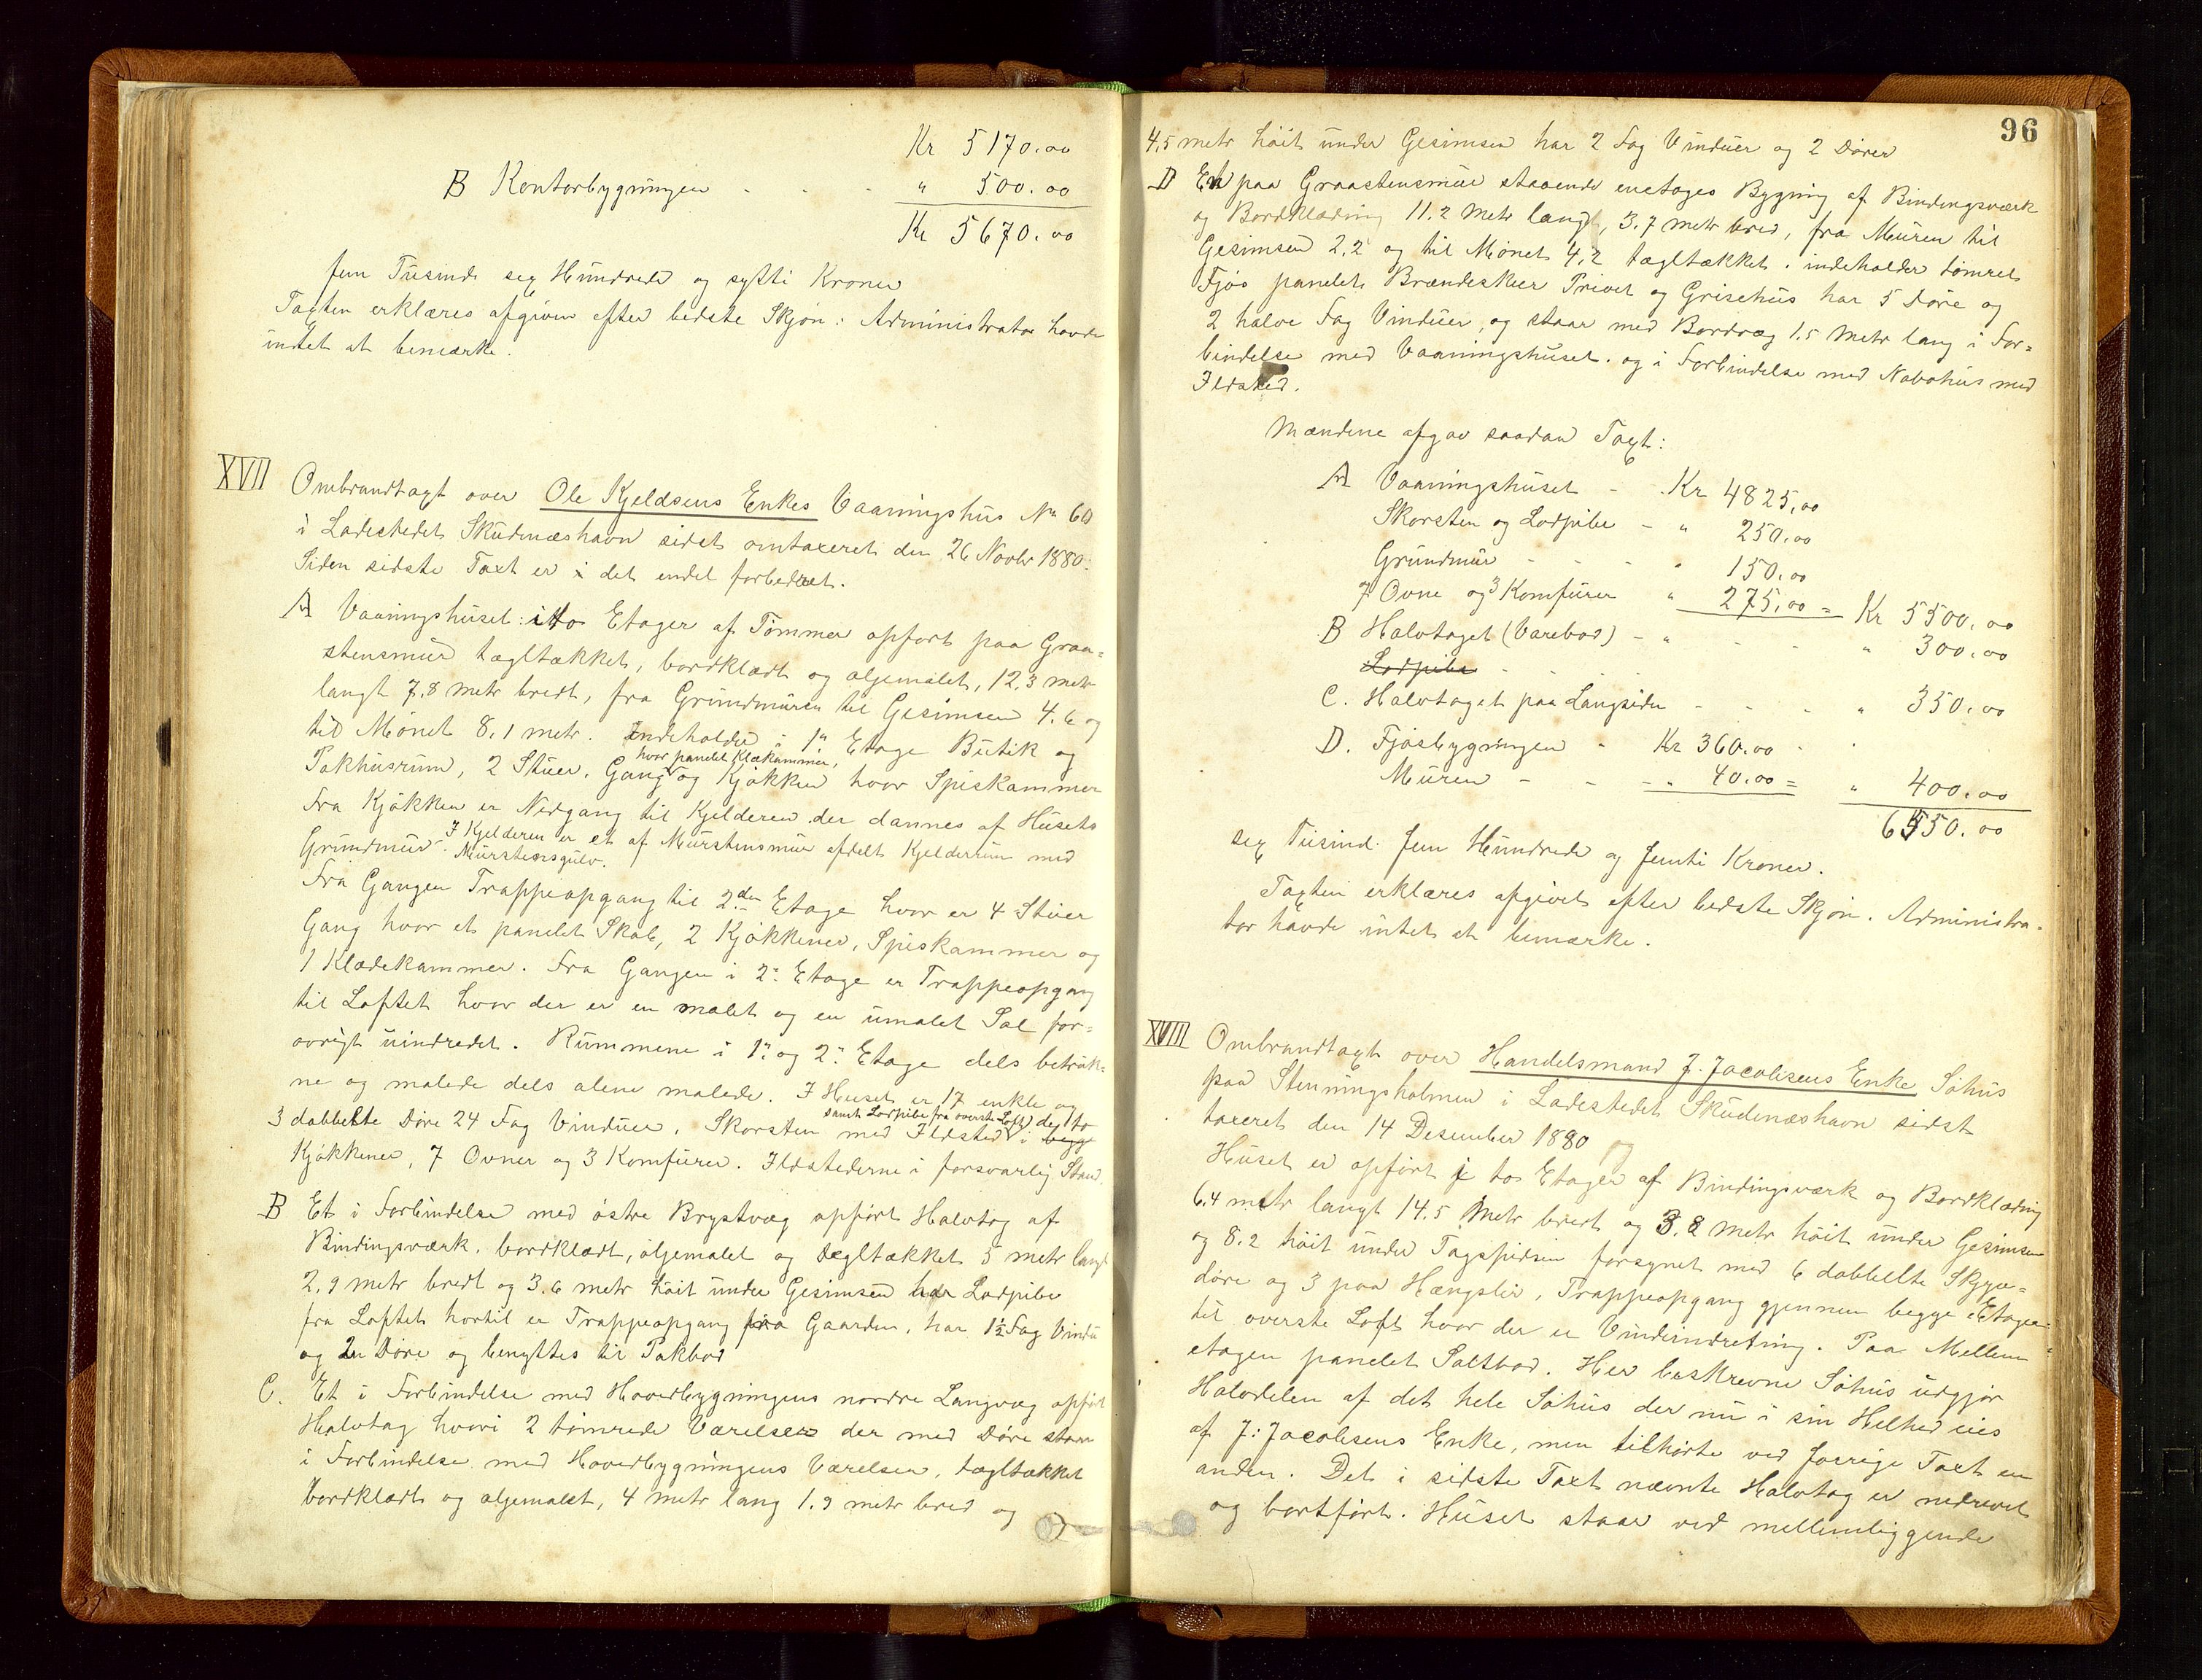 Kr 5170.00
B Kontorbygningen - - - " 500.00
Kr 5670.00
fem Tusinde sex Hundrede og sytti Kroner
Taxten erklæres afgiven efter bedste Skjøn: Administrator havde
intet at bemærke.
XVII Ombrandtaxt over Ole Kjeldsens Enkes Vaaningshus No 60
i Ladestedet Skudesnæshavn sidst omtaxeret den 26 Novbr 1880.
Siden sidste Taxt er i det endel forbedret.
A Vaaningshuset: i to Etager af Tømmer opført paa Graa=
stensmur tægltækket, bordklædt og oljemalet, 12,3 metr
langt 7,8 metr bredt, fra Grundmuren til Gesimsen 4.6 og
til Mønet 8,1 metr. Indeholder i 1ste Etage Butik og
hvor panelet Klækammer,
Pakhusrum, 2 Stuer, Gang og Kjøkken hvor Spiskammer
Fra Kjøkken er Nedgang til Kjelderen der dannes af Husets
Grundmur. I Kjelderen er et af Murstensmur afdelt Kjelderrum med
Murstensgulv.
Fra Gangen Trappeopgang til 2den Etage hvor er 4 Stuer
Gang hvor et panelet Skab, 2 Kjøkkener, Spiskammer og
1 Klædekammer. Fra Gangen i 2: Etage er Trappeopgang
til Loftet hvor der er en malet og en umalet Sal for=
øvrigt uindredet. Rummene i 1: og 2: Etage dels betruk=
ne og malede dels alene malede. I Huset er 17 enkle og
samt Lodpibe fra øverste Loft
3 dobbelte Døre 24 Fag Vinduer, Skorsten med Ildsted i begge de to
Kjøkkener, 7 Ovner og 3 Komfurer. Ildstederne i forsvarlig Stand.
B Et i Forbindelse med østre Brystvæg opført Halvtag af
Bindingsværk, bordklædt, oljemalet og tægltækket 5 metr langt
2,9 metr bredt og 3.6 metr høit under Gesimsen har Lodpibe
fra Loftet hortil er Trappeopgang fra Gaarden, har 1½ Fag Vindu
og 2 Døre og benyttes til Pakbod
C. Et i Forbindelse med Hovedbygningens nordre Langvæg opført
Halvtag hvori 2 tømrede Værelser der med Døre staar
i Forbindelse med Hovedbygningens Værelser, tægltækket
bordklædt og oljemalet, 4 metr lang 1.9 metr bred og
96
4,5 metr høit under Gesimsen har 2 Fag Vinduer og 2 Dører
D En paa Graastensmur staaende enetages Bygning af Bindingsværk
og Bordklædning 11.2 Metr lang, 3.7 metr bred, fra Muren til
Gesimsen 2,2 og til Mønet 4,2 tægltækket. indeholder tømret
Fjøs panelet Brændeskur Privet og Grisehus har 5 Døre og
2 halve Fag Vinduer, og staar med Bordvæg 1.5 Metr lang i For=
bindelse med Vaaningshuset. og i Forbindelse med Nabohus med
Ildsted.
Mændene afgav saadan Taxt:
A Vaaningshuset - Kr 4825,00
Skorsten og Lodpibe - " 250.00
Grundmur - - - " 150.00
7 Ovne og 3 Komfurer " 275,00 = Kr 5500.00
B Halvtaget (Varebod) - " - - " 300.00
Lodpibe - -
C. Halvtaget paa Langsiden - - - " 350.00
D. Fjøsbygningen - Kr 360.00 - -
Muren - - - " 40.00 = " 400.00
6550.00
sex Tusind fem Hundrede og femti Kroner.
Taxten erklæres afgivet efter bedste Skjøn. Administra-
tor havde intet at bemærke.
XVIII Ombrandtaxt over Handelsmand J. Jacobsens Enke Søhus
paa Steiningsholmen i Ladestedet Skudesnæshavn sidst
taxeret den 14 Desember 1880
Huset er opført i to Etager af Bindingsværk og Bordklædning
6,4 metr langt 14.5 Metr bredt og 3.8 Metr høit under Gesimsen
og 8.2 høit under Tagspidsen forsynet med 6 dobbelte Skyve=
døre og 3 paa Hængsler, Trappeopgang gjennem begge Etager
til øverste Loft hvor der er Vindeindretning. Paa Mellem=
etagen panelet Saltbod. Her beskrevne Søhus udgjør
Halvdelen af det hele Søhus der nu i sin Helhed eies
af J: Jacobsens Enke, men tilhørte ved forrige Taxt en
anden. Det i sidste Taxt nævnte Halvtag er nedrevet
og bortført. Huset staar ved mellemliggende